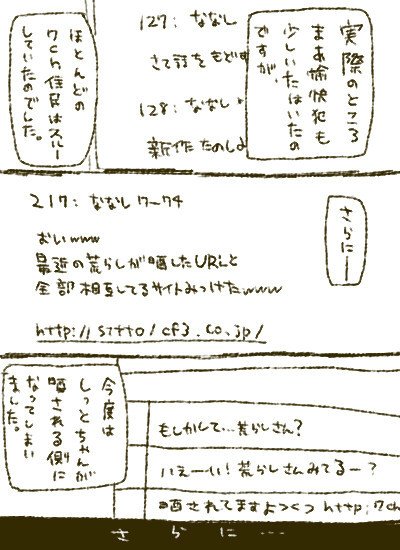 実際のところ
まあ愉快犯も
少しいたはいたの
ですが、
127: ななし
さて話をもどす
128: ななし
新作たのしみ
ほとんどの
7ch住民はスルー
していたのでした。
さらにー
217: ななしワークチ
おいwww
最近の荒らしが晒したURLと
全部相互してるサイトみつけたwww
http://s7tto/cf3.co.jp/
今度は
しっとちゃんが
晒される側に
なってしまい
ました。
もしかして…荒らしさん?
いえーい!荒らしさんみてるー?
晒されてますよつ http:7ch
さらに…